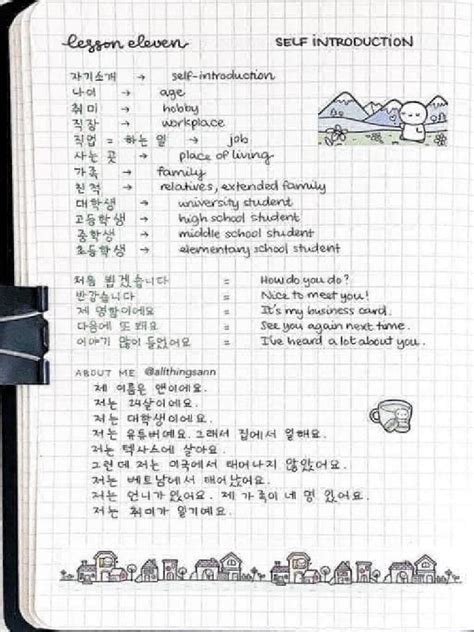 lesson eleven
SELF INTRODUCTION
자기소개 → self-introduction
나이 → age
취미 → hobby
직장 → workplace
직업 = 하는 일 → job
사는 곳 → place of living
가족 → family
친척 → relatives, extended family
대학생 → university student
고등학생 → high school student
중학생 → middle school student
초등학생 → elementary school student
처음 뵙겠습니다 = How do you do?
반갑습니다 = Nice to meet you!
제 명함이에요 = It's my business card.
다음에 또 봬요 = See you again next time.
이야기 많이 들었어요 = I've heard a lot about you.
ABOUT ME @allthingsann
제 이름은 앤이에요.
저는 24살이에요.
저는 대학생이에요.
저는 유튜버예요. 그래서 집에서 일해요.
저는 텍사스에 살아요.
그런데 저는 미국에서 태어나지 않았어요.
저는 베트남에서 태어났어요.
저는 언니가 있어요. 제 가족이 네 명 있어요.
저는 취미가 일기예요.